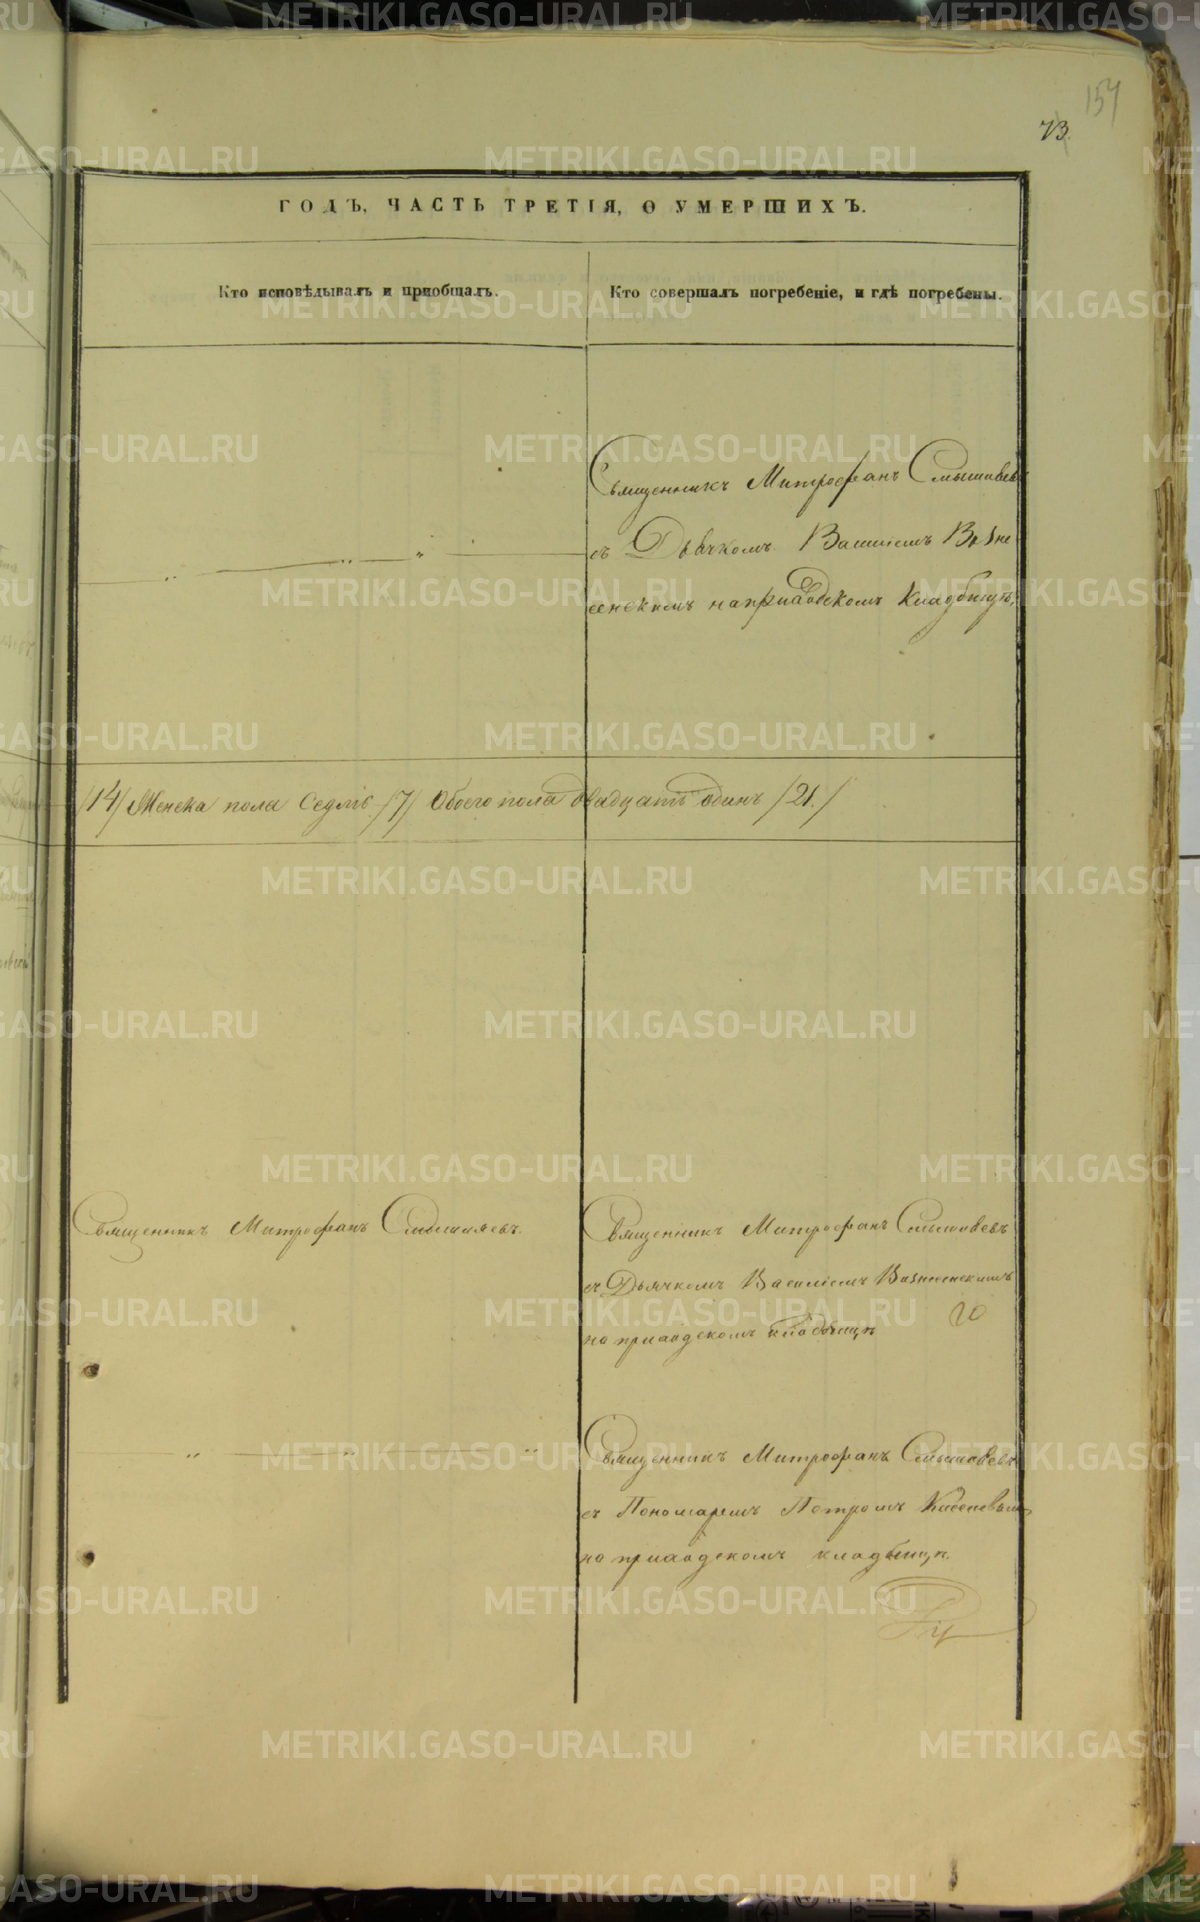 154
73.
ГОДЪ, ЧАСТЬ ТРЕТІЯ, О УМЕРШИХЪ.
Кто исповѣдывалъ и пріобщалъ.
Кто совершалъ погребеніе, и гдѣ погребены.
Священникъ Митрофанъ Смышляевъ
съ Дьячкомъ Василіемъ Возне
сенскимъ на приходскомъ кладбищѣ,
/14/ Женска пола Седмь /7/ Обоего пола двадцать одинъ /21./
Священникъ Митрофанъ Смышляевъ.
Священникъ Митрофанъ Смышляевъ
съ Дьячкомъ Василіемъ Вознесенскимъ
на приходскомъ кладбищѣ
Священникъ Митрофанъ Смышляевъ
съ Пономаремъ Петромъ
на приходскомъ кладбищѣ.
METRIKI.GASO-URAL.RU